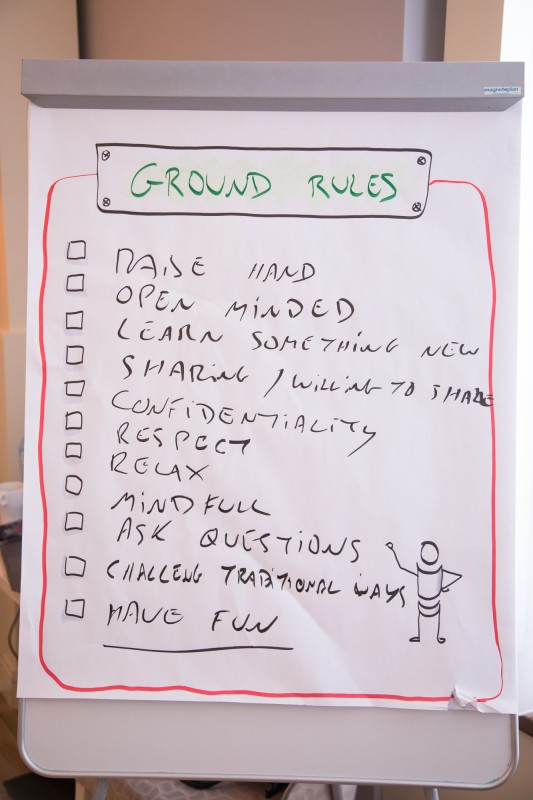 magnetoplan
GROUND RULES
RAISE HAND
OPEN MINDED
LEARN SOMETHING NEW
SHARING / WILLING TO SHARE
CONFIDENTIALITY
RESPECT
RELAX
MINDFULL
ASK QUESTIONS
CHALLENG TRADITIONAL WAYS
HAVE FUN